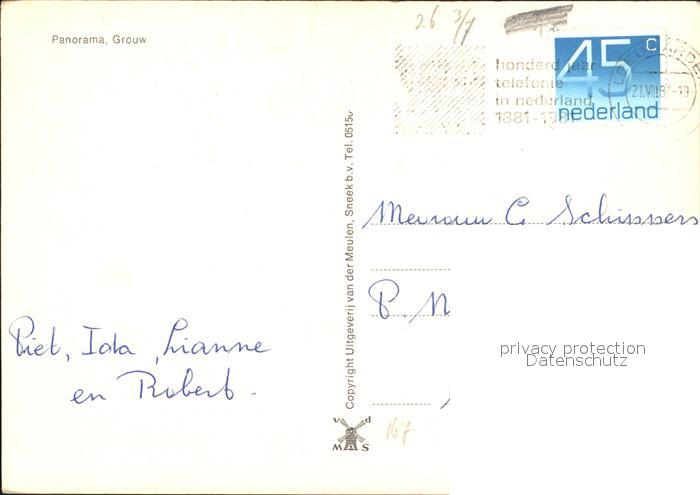 26 3/7
Panorama, Grouw
45 c
nederland
honderd jaar
telefonie
in nederland
1881-1981
21.VII.81-19
Copyright Uitgeverij van der Meulen, Sneek b.v. Tel. 0515
Mevrouw C Schippers
P. N
privacy protection
Datenschutz
Piet, Ida, Lianne
en Robert.
v d
M S
167